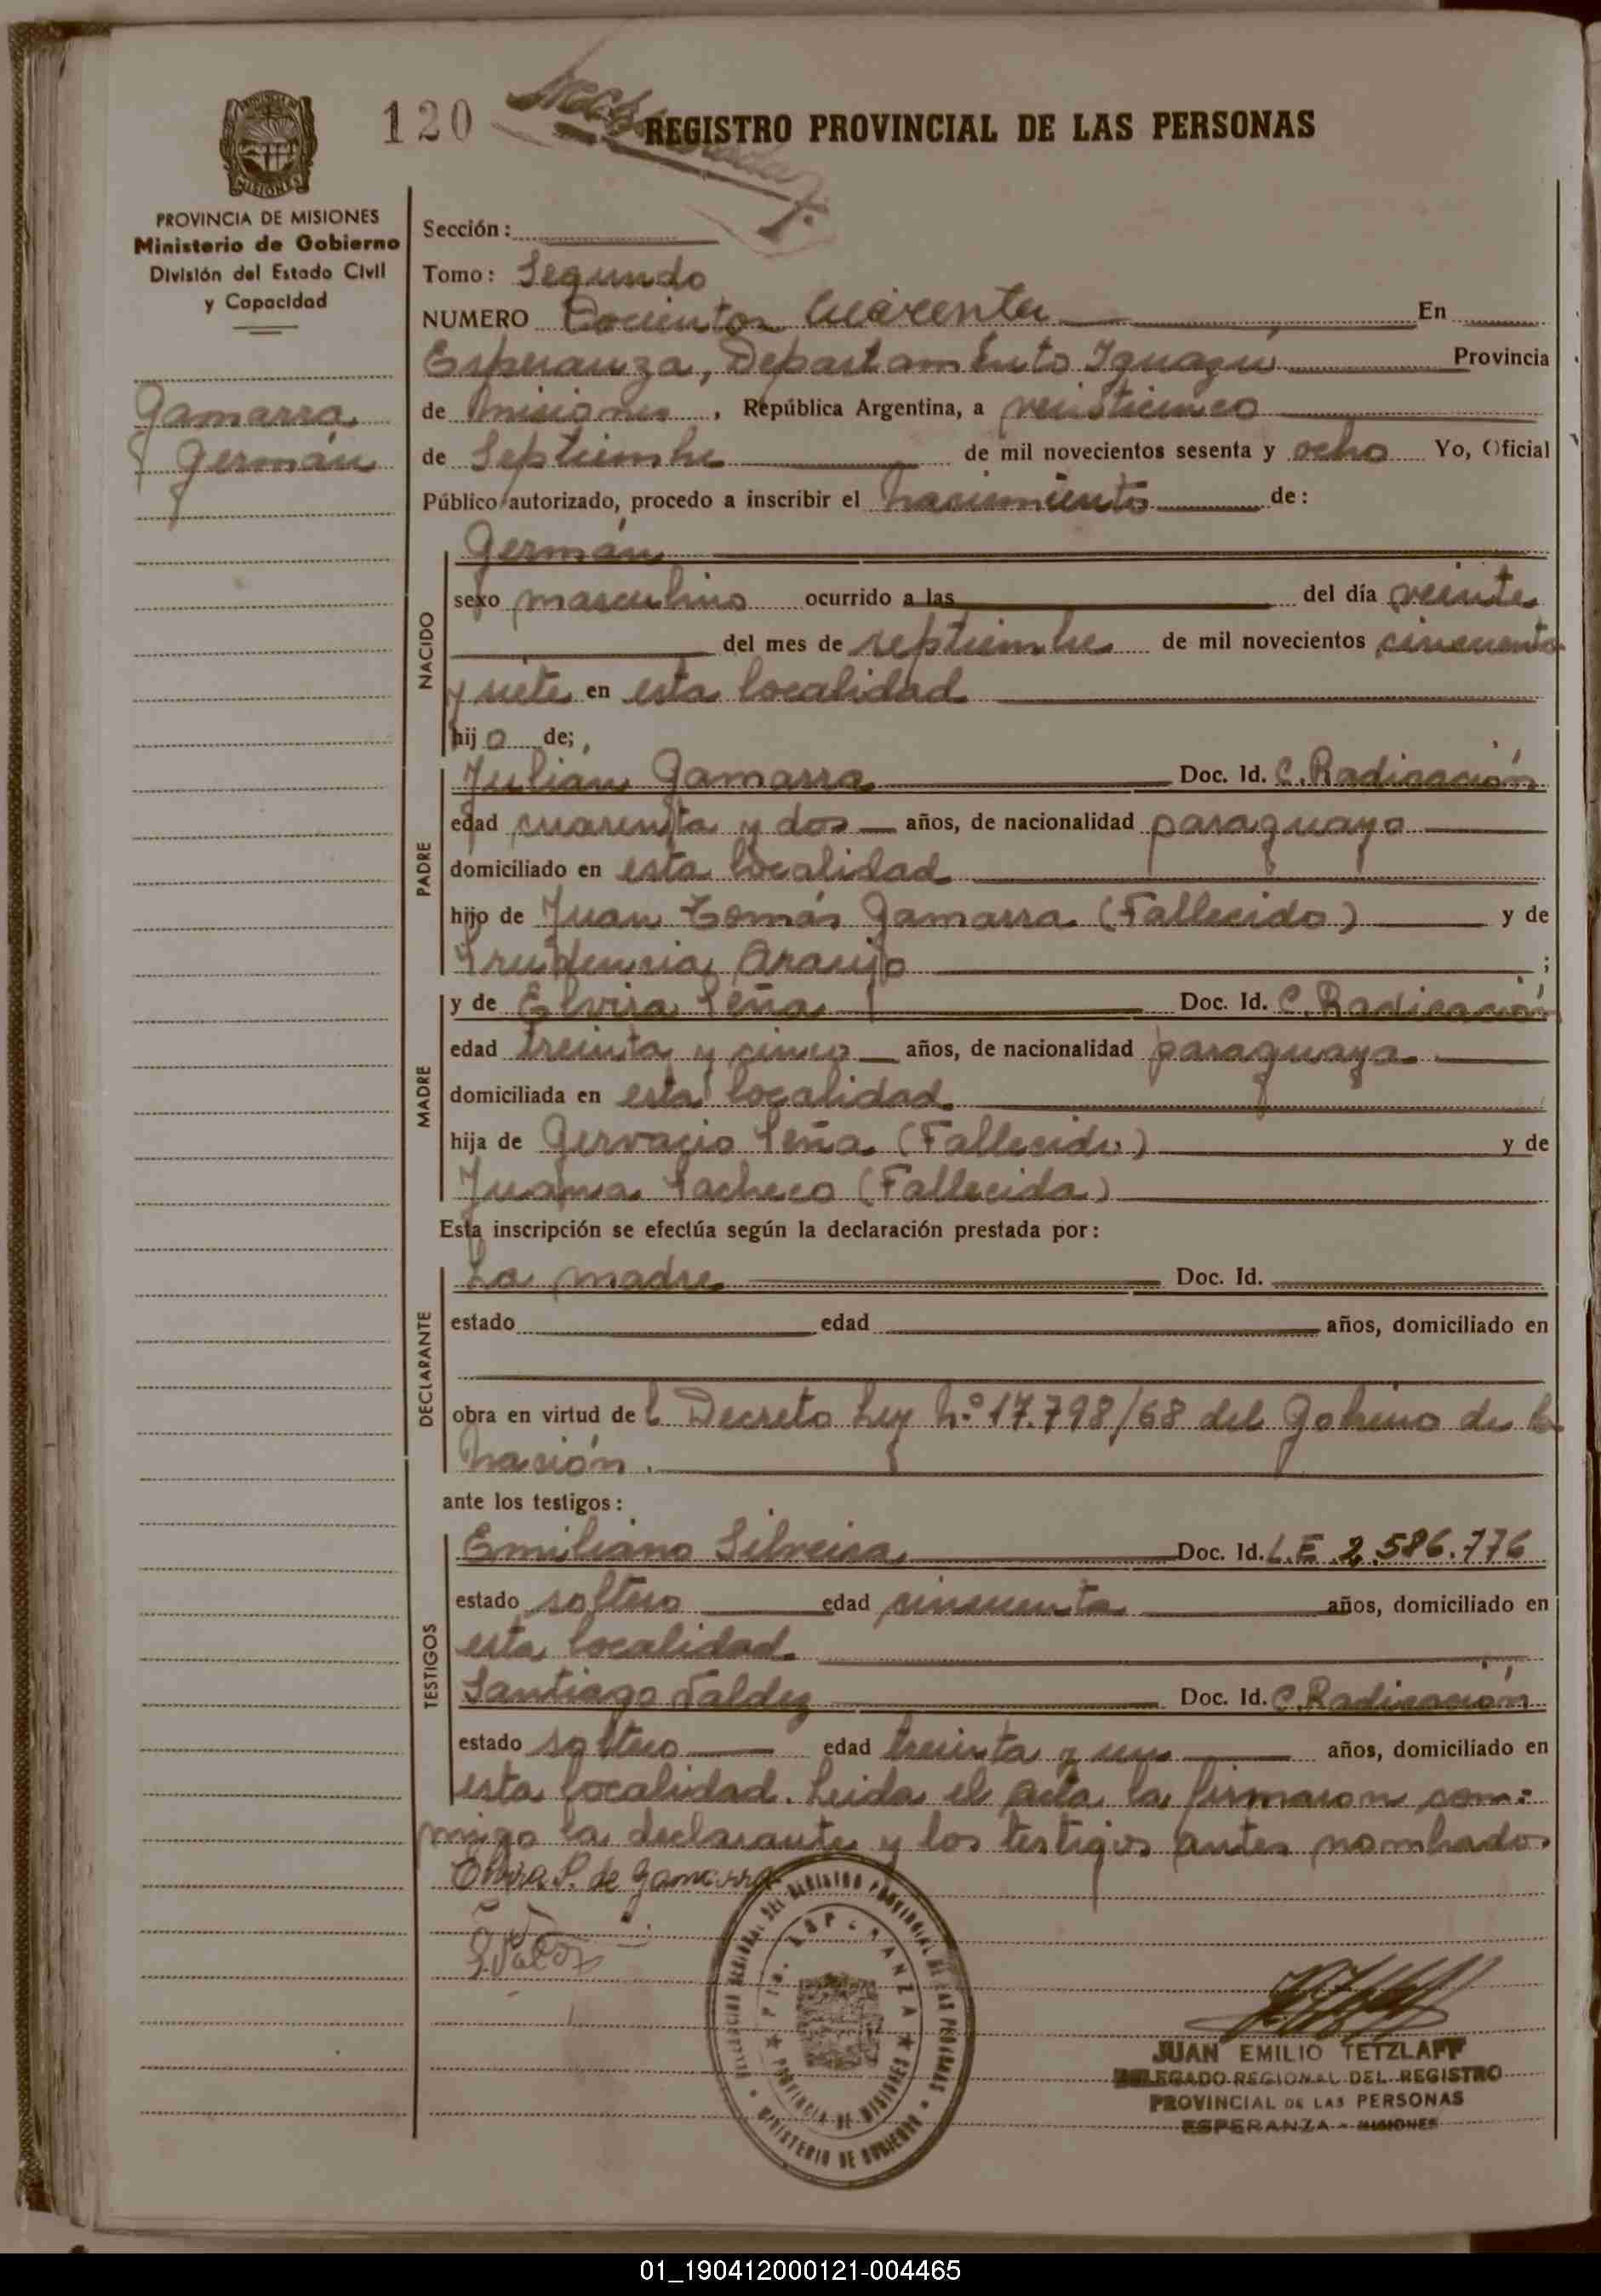 120
REGISTRO PROVINCIAL DE LAS PERSONAS
PROVINCIA DE MISIONES
Ministerio de Gobierno
División del Estado Civil
y Capacidad
Gamarra
Germán
Sección:
Tomo: Segundo
NUMERO Docientos Cuarenta En
Esperanza, Departamento Iguazú Provincia
de Misiones, República Argentina, a veinticinco
de Septiembre de mil novecientos sesenta y ocho Yo, Oficial
Público autorizado, procedo a inscribir el nacimiento de:
NACIDO
Germán
sexo masculino ocurrido a las del día veinte
del mes de septiembre de mil novecientos cincuenta
y siete en esta localidad
hijo de;
PADRE
Julián Gamarra Doc. Id. C. Radicación
edad cuarenta y dos años, de nacionalidad paraguayo
domiciliado en esta localidad
hijo de Juan Tomás Gamarra (Fallecido) y de
Prudencia Araujo ;
MADRE
y de Elvira Peña Doc. Id. C. Radicación
edad treinta y cinco años, de nacionalidad paraguaya
domiciliada en esta localidad
hija de Gervacio Peña (Fallecido) y de
Juana Pacheco (Fallecida)
Esta inscripción se efectúa según la declaración prestada por:
DECLARANTE
La madre Doc. Id.
estado edad años, domiciliado en
obra en virtud del Decreto Ley Nº 17.798/68 del Gobierno de la
Nación.
ante los testigos:
TESTIGOS
Emiliano Silveira Doc. Id. L.E. 2.586.776
estado soltero edad cincuenta años, domiciliado en
esta localidad
Santiago Valdez Doc. Id. C. Radicación
estado soltero edad treinta y un años, domiciliado en
esta localidad. Leida el acta la firmaron con=
migo la declarante y los testigos antes nombrados
Elvira P. de Gamarra
S. Valdez
PROVINCIA DE MISIONES
MINISTERIO DE GOBIERNO
JUAN EMILIO TETZLAFF
DELEGADO REGIONAL DEL REGISTRO
PROVINCIAL DE LAS PERSONAS
ESPERANZA - MISIONES
01_190412000121-004465